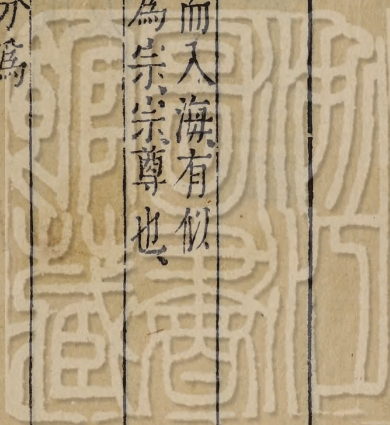 而入海有似
為宗宗尊也
亦為